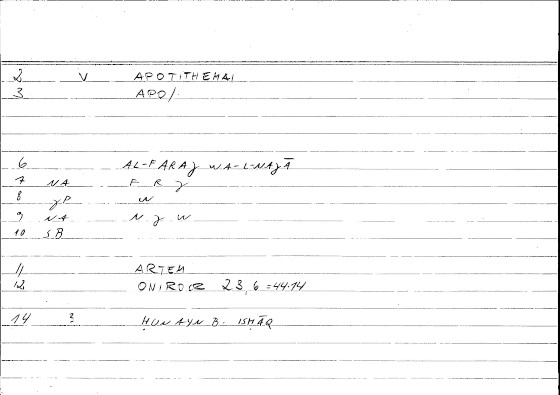 2 V APOTITHEMAI
3 APO/
6 AL-FARAJ WA-L-NAJĀ
7 NA F R J
8 JP W
9 NA N J W
10 SB
11 ARTEM
12 ONIROCR 23,6 = 44.14
14 3 ḤUNAYN B. ISḤĀQ